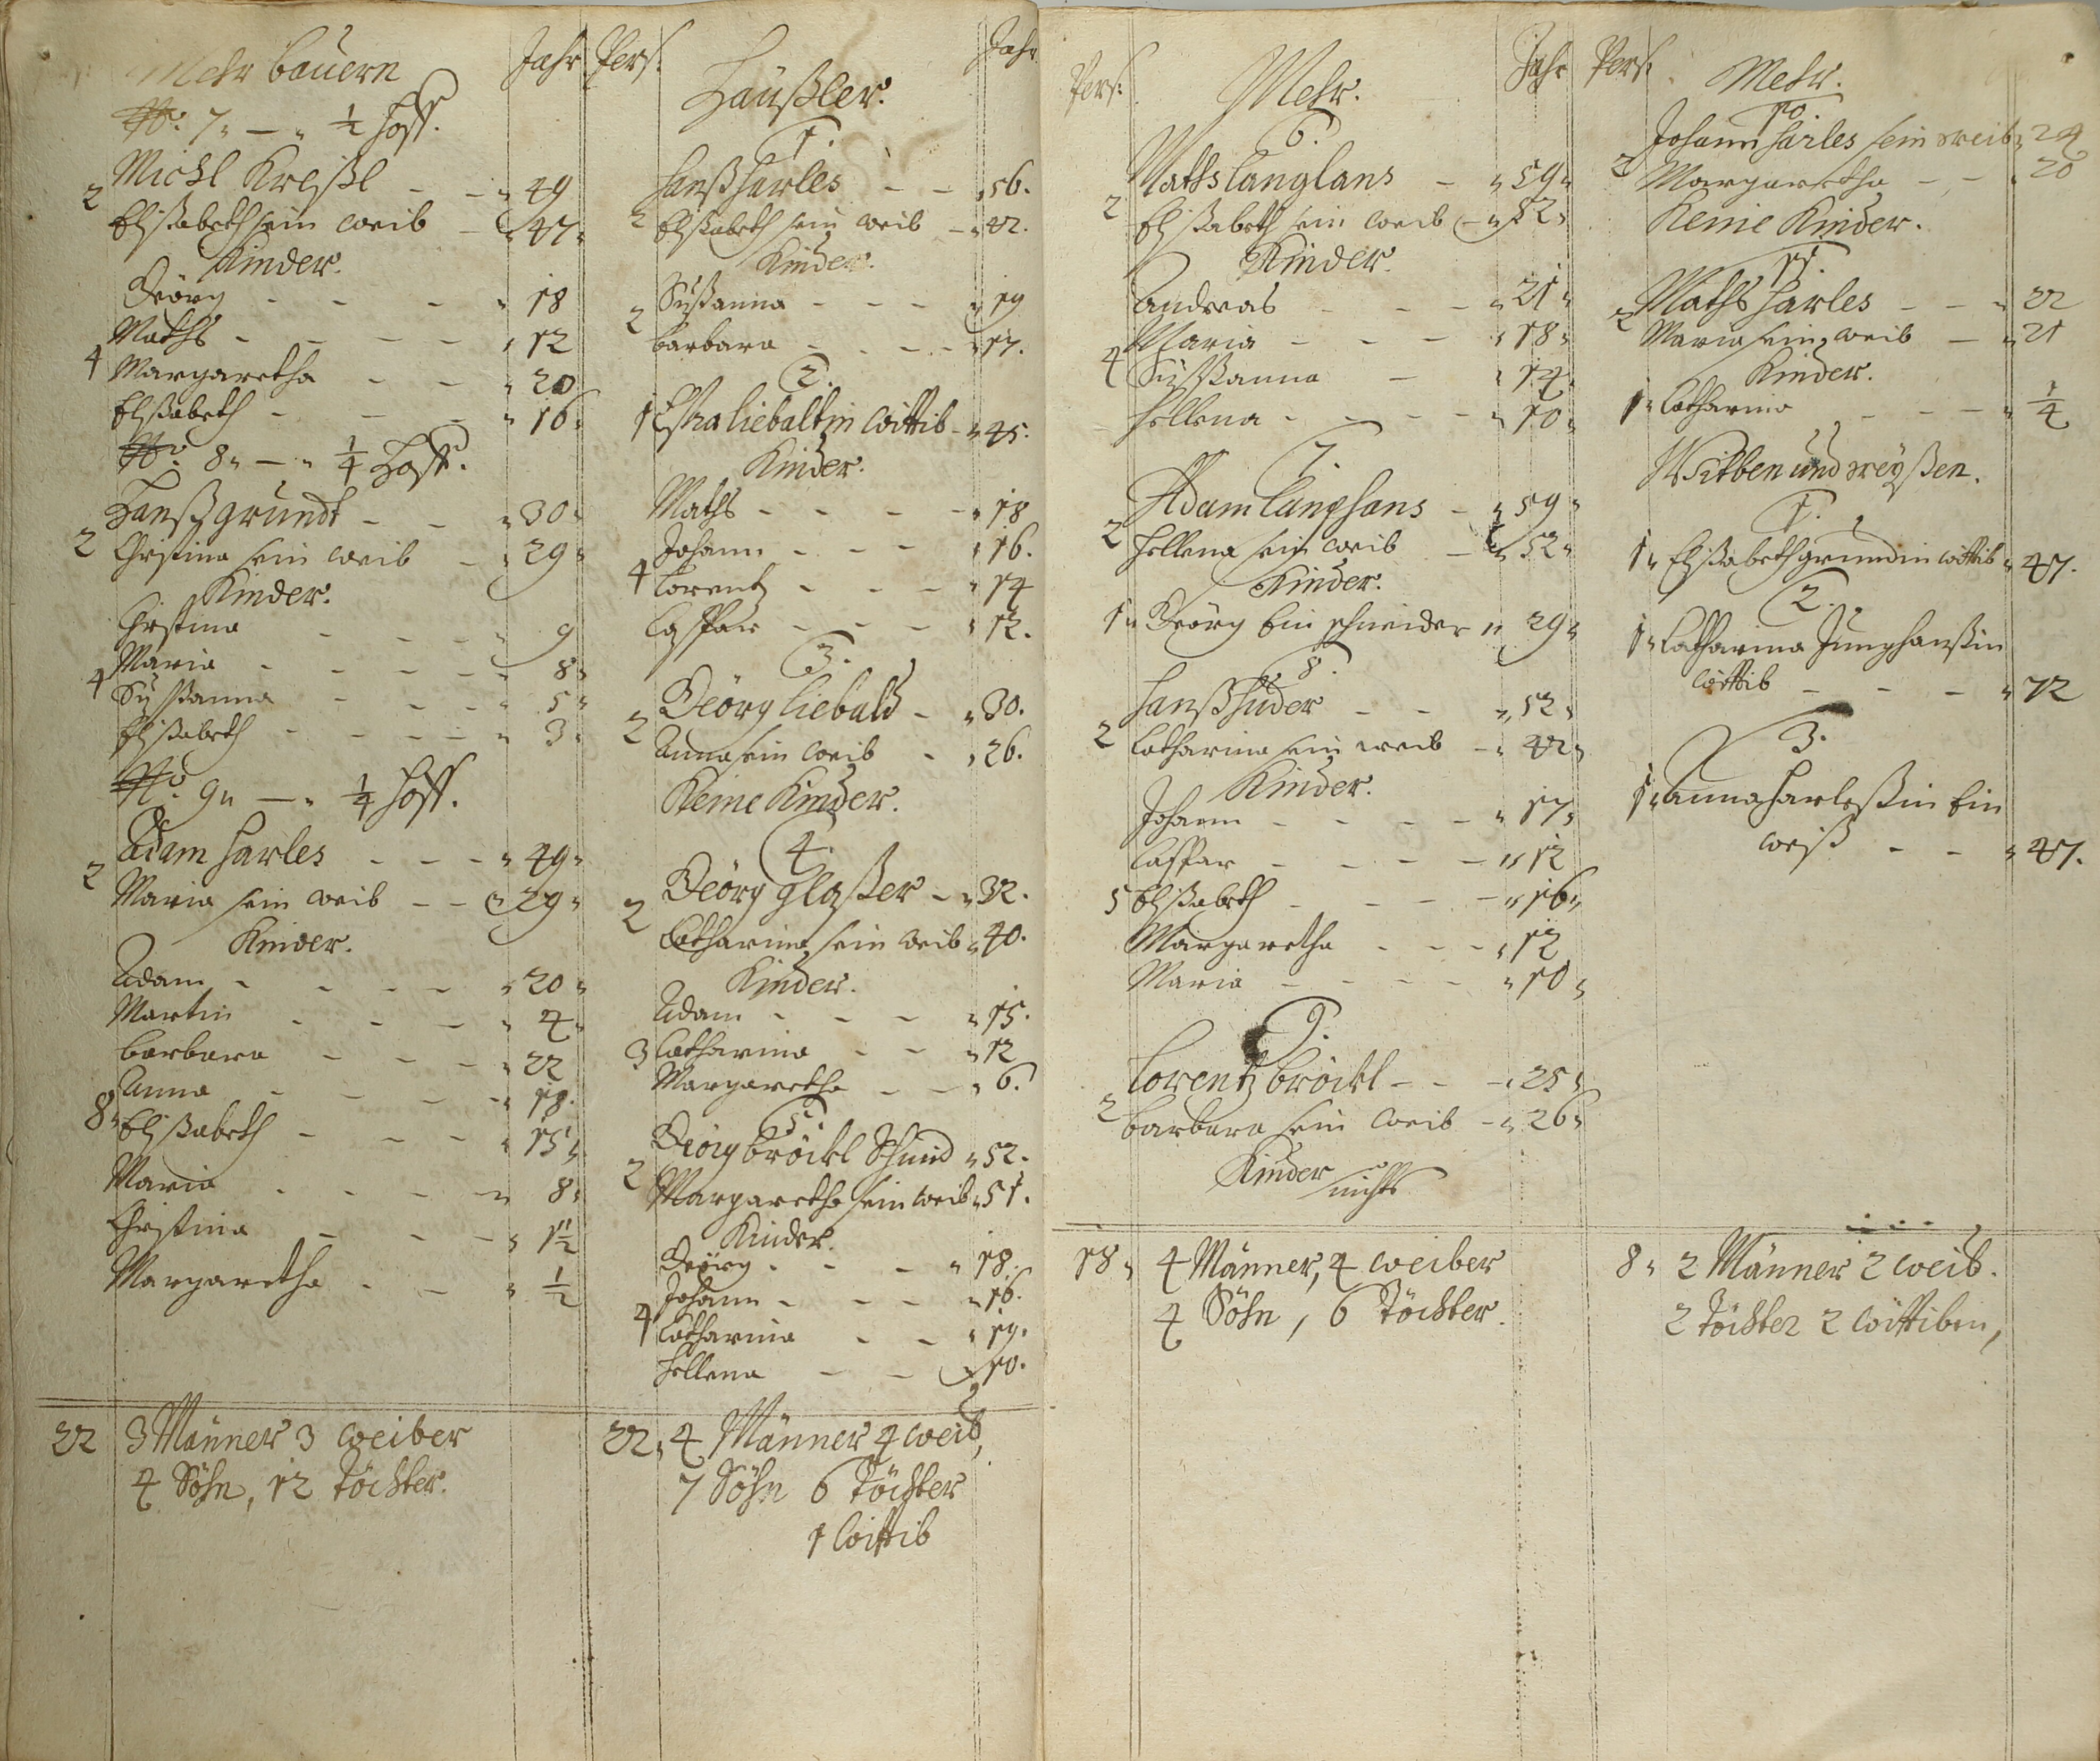 Mehr Bauern Jahr
No. 7. — ½ Hoff.
2 Michl Kreißl - - 49
Elisabeth sein weib - 47
Kinder.
Geörg - - - 18
Maths - - - - 12
4 Margaretha - - 20
Elisabeth - - - 16
No. 8. — ¼ Hoff.
2 Hanß grundt - - 30
Christina sein weib - 29
Kinder.
Christina - - - 9
4 Maria - - - - 8
Sussanna - - - 5
Elisabeth - - - - 3
No. 9. — ¼ Hoff.
2 Adam Harles - - - 49
Maria sein weib - - 29
Kinder.
Adam - - - - 20
Martin - - - 4
Barbara - - - 22
Anna - - - - 18
8 Elisabeth - - - 15
Maria - - - - 8
Christina - - - 1½
Margaretha - - ½
22 3 Männer 3 weiber
4 Söhn, 12 Töchter.
Pers. Häußler. Jahr
1.
2 Hanß Harles - - 56.
Elisabeth sein weib - 42.
Kinder.
2 Sußanna - - - 19
Barbara - - - - 17.
2.
1 liebaltin wittib - 45.
Kinder.
Maths - - - - 18
Johann - - - 16.
4 Lorentz - - - 14
Casspar - - - 12.
3.
2 Geörg liebald - 30.
Anna sein weib - 26.
Keine Kinder.
4.
2 Geörg glaßer - 32.
Catharina sein weib 40.
Kinder.
Adam - - - 15.
3 Catharina - - 12
Margaretha - - 6.
5.
2 Geörg bröckl Schmid 52.
Margaretha sein weib 51.
Kinder.
Geörg - - - 18.
Johann - - - 16.
4 Catharina - - 19.
Hellena - - 10.
22, 4 Männer 4 weib,
7 Söhn 6 Töchter
1 wittib
Pers. Mehr. Jahr
6.
2 Maths langhans - 59
Elisabeth sein weib - 52
Kinder.
Andreas - - - 21
Maria - - - 18
4 Sussanna - 14
Hellena - - - - 10
7.
2 Adam langhans - 59
Hellena sein weib - 52
Kinder.
1 Geörg Ein schneider 29
8.
2 Hanß Huder - - 52
Catharina sein weib - 42
Kinder.
Johann - - - - 17
Casspar - - - - 12
5 Elisabeth - - - 16
Margaretha - - - 12
Maria - - - - 10
9.
2 Lorentz bröckl - - 25
Barbara sein weib - 26
Kinder nichts
18 4 Männer, 4 weiber
4 Söhn, 6 Töchter.
Pers. Mehr.
10.
2 Johann Harles sein weib 24
Margaretha - - 20
Keine Kinder.
11.
2 Maths Harles - - 22
Maria sein weib - 21
Kinder.
1 Catharina - - - ¼
Witben und weyßen.
1.
1 Elisabeth grundin wittib 47.
2.
1 Catharina Junghanßin
wittib - - - 72
3.
1 Anna Harleßin Ein
weiß - - 47.
8 2 Männer 2 weib.
2 Töchter 2 wittiben,